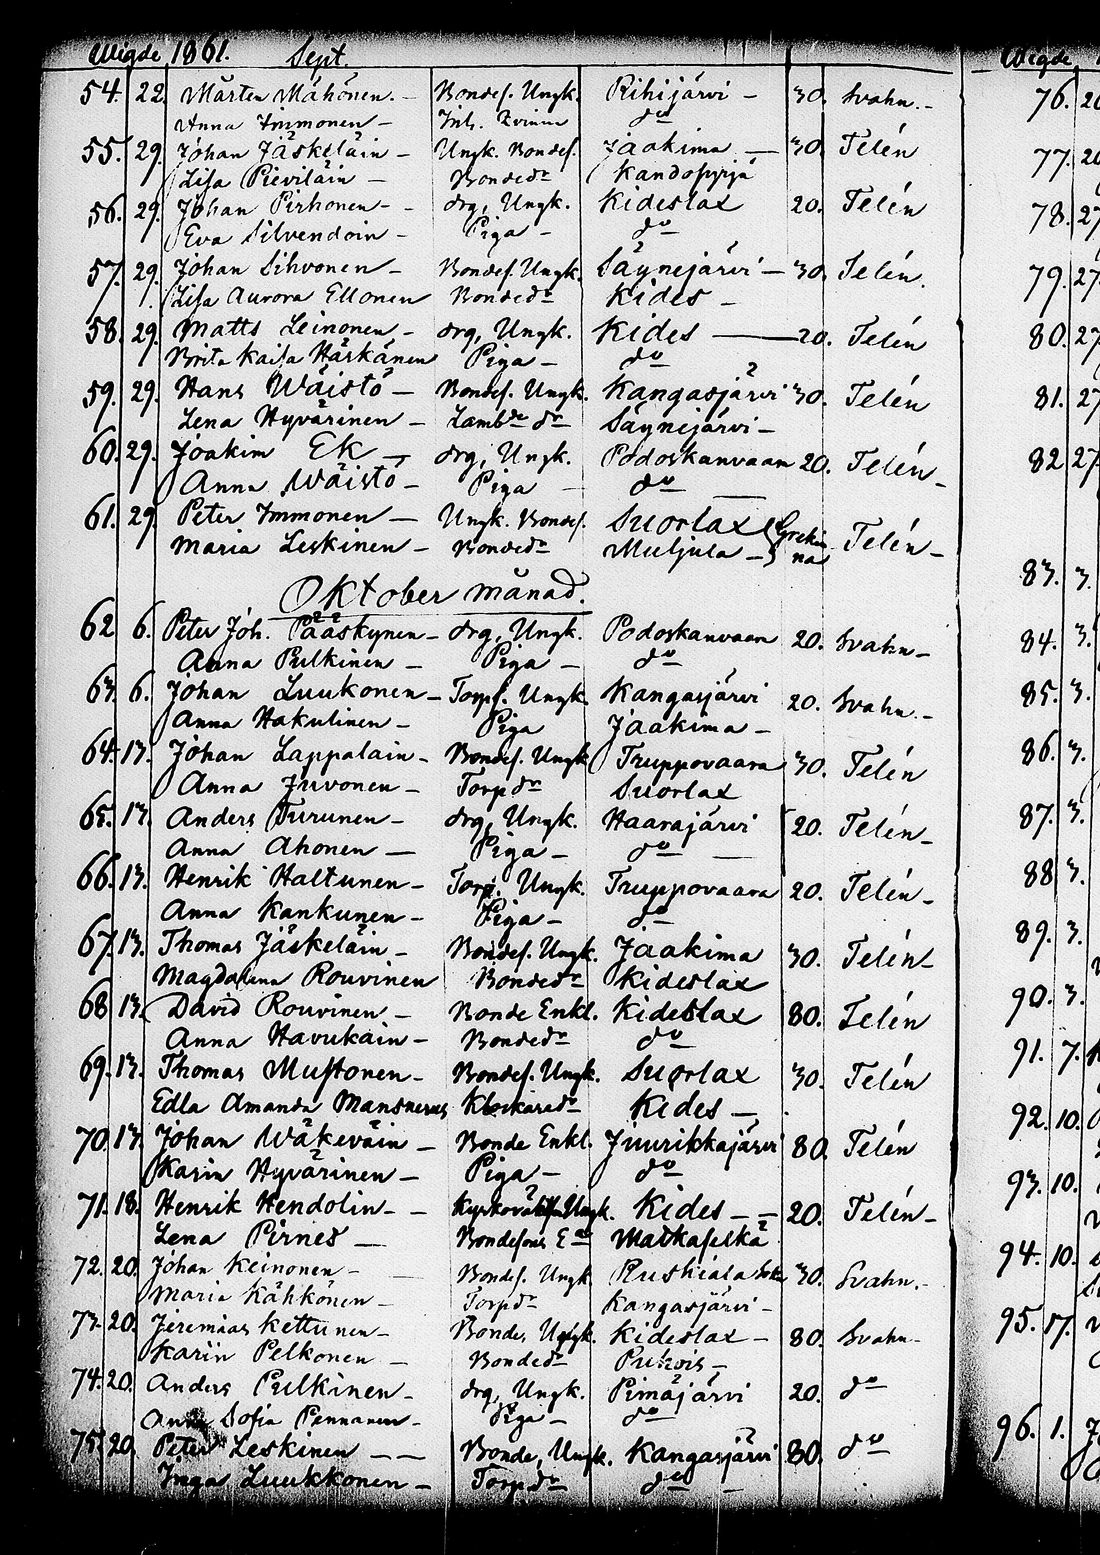 Wigde 1861. Sept. Wigde
54. 22. Mårten Måhönen. – Bondes. Ungk. Rihijärvi – 30. Svahn. – 76.
Anna Immonen – Inh. do
55. 29. Johan Jäskeläin – Ungk. Bondes. Jaakima — 30. Telén 77.
Lisa Pieviläin – Bondedr Kandopyjä
56. 29. Johan Pirhonen – drg, Ungk. Kideslax 20. Telén 78. 27
Eva Silvendoin – Piga – do
57. 29. Johan Sihvonen – Bondes. Ungk. Säynejärvi – 30. Telén. 79. 27.
Lisa Aurora Ellonen Bondedr Kides –
58. 29. Matts Leinonen – drg, Ungk. Kides — 20. Telén 80. 27
Brita Kaisa Häskänen Piga – do
59. 29. Hans Wäistö – Bondes. Ungk. Kangasjärvi 30. Telén 81. 27
Lena Hyvärinen – Lambdr dr Säynejärvi –
60. 29. Joakim Ek – drg, Ungk. Podoskanvaan 20. Telén – 82 27
Anna Wäistö – Piga – do —
61. 29. Peter Immonen – Ungk. Bondes. Suorlax Telén –
Maria Leskinen – Bondedr Muljula –
83. 3.
Oktober månad.
62 6. Peter Joh. Pääskynen – drg, Ungk. Podoskanvaan 20. Svahn – 84. 3.
Anna Pulkinen – Piga – do
63. 6. Johan Luukonen – Torps. Ungk. Kangasjärvi 20. Svahn. – 85. 3.
Anna Hakulinen – Piga Jaakima –
64. 13. Johan Lappalain – Bondes. Ungk. Truppovaara 30. Telén 86. 3.
Anna Juvonen – Torpdr Suorlax
65. 13. Anders Turunen – drg, Ungk. Haarajärvi 20. Telén – 87. 3.
Anna Ahonen — Piga – do —
66. 13. Henrik Haltunen – Torp. Ungk. Truppovaara 20. Telén – 88 3.
Anna Kankunen – Piga – do
67. 13. Thomas Jäskeläin – Bondes. Ungk. Jaakima 30. Telén – 89. 3.
Magdalena Rouvinen Bondedr Kideslax
68 13. David Rouvinen – Bonde Enkl. Kideslax 80. Telén 90. 3.
Anna Havukain – Bondedr do
69. 13. Thomas Mustonen – Bondes. Ungk. Suorlax 30. Telén 91. 7.
Edla Amanda Mansnerus Klockaredr Kides –
92. 10.
70. 13. Johan Wäkeväin – Bonde Enkl. Juurikkajärvi 80. Telén
Karin Hyvärinen – Piga – do
93. 10.
71. 18. Henrik Hendolin – Ungk. Kides – – 20. Telén –
Lena Pirnes — Bondesons Matkaselkä
94. 10.
72. 20. Johan Keinonen – Bondes. Ungk Ruskiala 30. Svahn. –
Maria Kähkönen – Torpdr Kangasjärvi –
73. 20. Jeremias Kettunen – Bonde, Ungk. Kideslax – 80. Svahn – 95. 17.
Karin Pelkonen – Bondedr Puhois –
74. 20. Anders Pulkinen – drg, Ungk. Pimäjärvi 20. do
Anna Sofia Pennanen – Piga – do
96. 1.
75. 20. Peter Leskinen — – Bonde, Ungk. Kangasjärvi 80. do
Inga Luukkonen – Torpdr do –